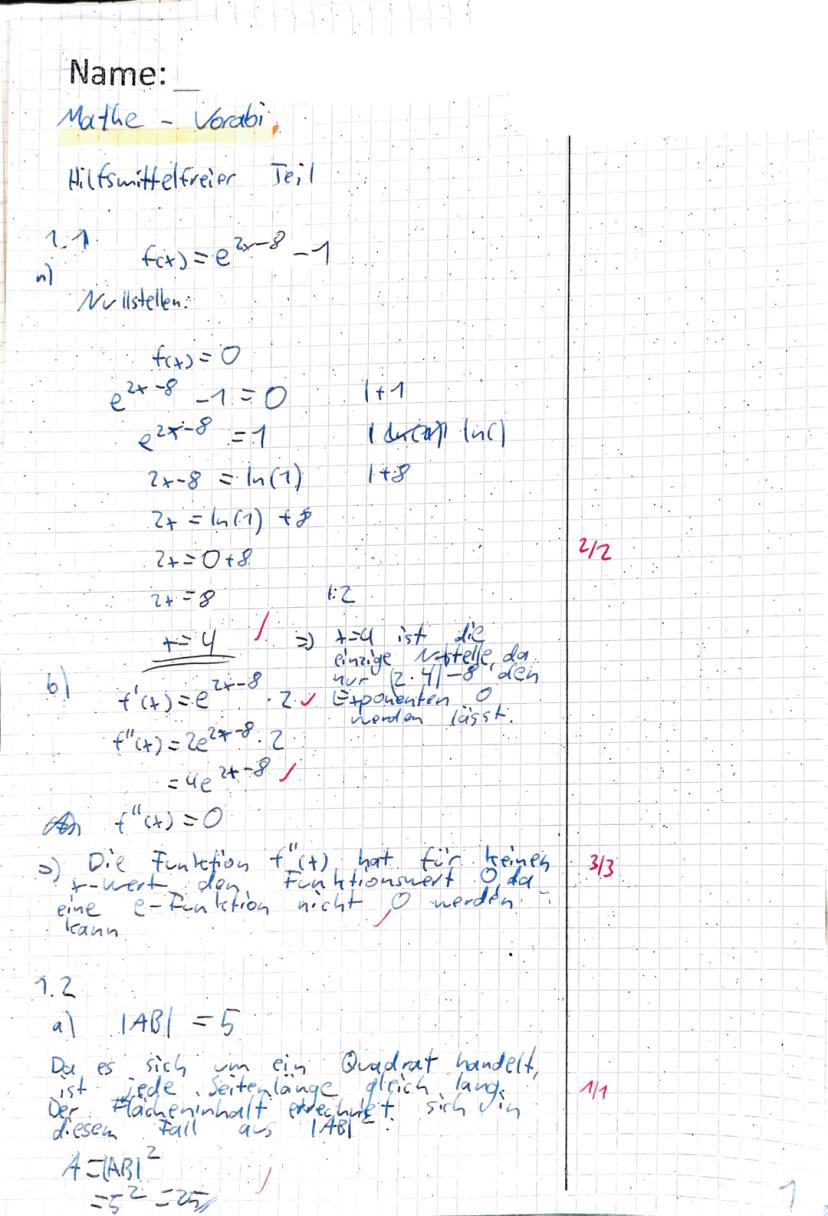 Name: _
Mathe - Vorabi
Hilfsmittelfreier Teil
1.1
a)
f(x) = e^{2x-8} - 1
Nullstellen:
f(x) = 0
e^{2x-8} - 1 = 0 | +1
e^{2x-8} = 1 | ln()
2x-8 = ln(1) | +8
2x = ln(1) + 8
2x = 0+8
2/2
2x = 8 | :2
x = 4 ✓ => x=4 ist die
einzige N-stelle, da
nur (2·4)-8 den
Exponenten 0
werden lässt.
b)
f'(x) = e^{2x-8} · 2 ✓
f''(x) = 2e^{2x-8} · 2
= 4e^{2x-8} ✓
f''(x) = 0
=> Die Funktion f''(x) hat für keinen
3/3
x-Wert den Funktionswert 0 da
eine e-Funktion nicht 0 werden
kann ✓
1.2
a) |AB| = 5
Da es sich um ein Quadrat handelt,
ist jede Seitenlänge gleich lang.
1/1
Der Flächeninhalt errechnet sich in
diesem Fall aus |AB|².
A = |AB|²
= 5² = 25 ✓
1